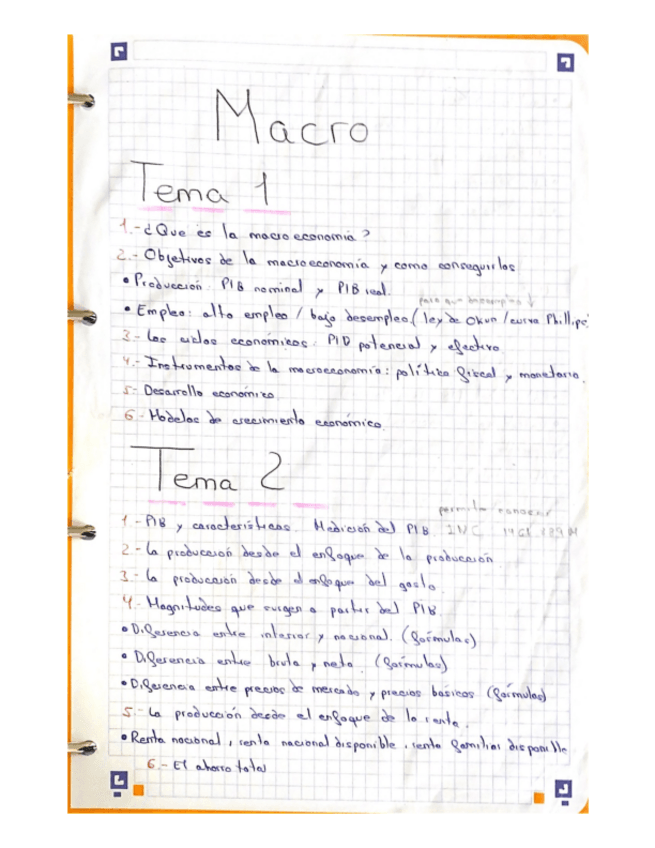 Macro
Tema 1
1.- ¿Que es la macroeconomia?
2.- Objetivos de la macroeconomía y como conseguirlos
• Producción: PIB nominal y PIB real.
para que
• Empleo: alto empleo / bajo desempleo (ley de Okun / curva Phillips)
3.- Los ciclos económicos: PIB potencial y efectivo
4.- Instrumentos de la macroeconomía: política fiscal y monetaria.
5.- Desarrollo económico
6.- Modelos de crecimiento económico.
Tema 2
permite conocer
1.- PIB y características. Medición del PIB.
2.- La producción desde el enfoque de la producción
3.- la producción desde el enfoque del gasto.
4.- Magnitudes que surgen a partir del PIB
• Diferencia entre interior y nacional. (fórmulas)
• Diferencia entre bruta y neta. (fórmulas)
• Diferencia entre precios de mercado y precios básicos (fórmulas)
5.- La producción desde el enfoque de la renta.
• Renta nacional, renta nacional disponible, renta familiar disponible
6.- El ahorro total